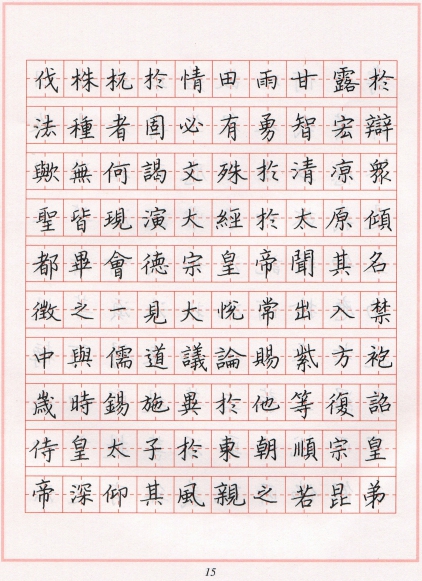 伐株杌於情田雨甘露於
法種者固必有勇智宏辯
歟無何謁文殊於清凉衆
聖皆現演大經於太原傾
都畢會德宗皇帝聞其名
徵之一見大悅常出入禁
中與儒道議論賜紫方袍
歲時錫施異於他等復詔
侍皇太子於東朝順宗皇
帝深仰其風親之若昆弟
15